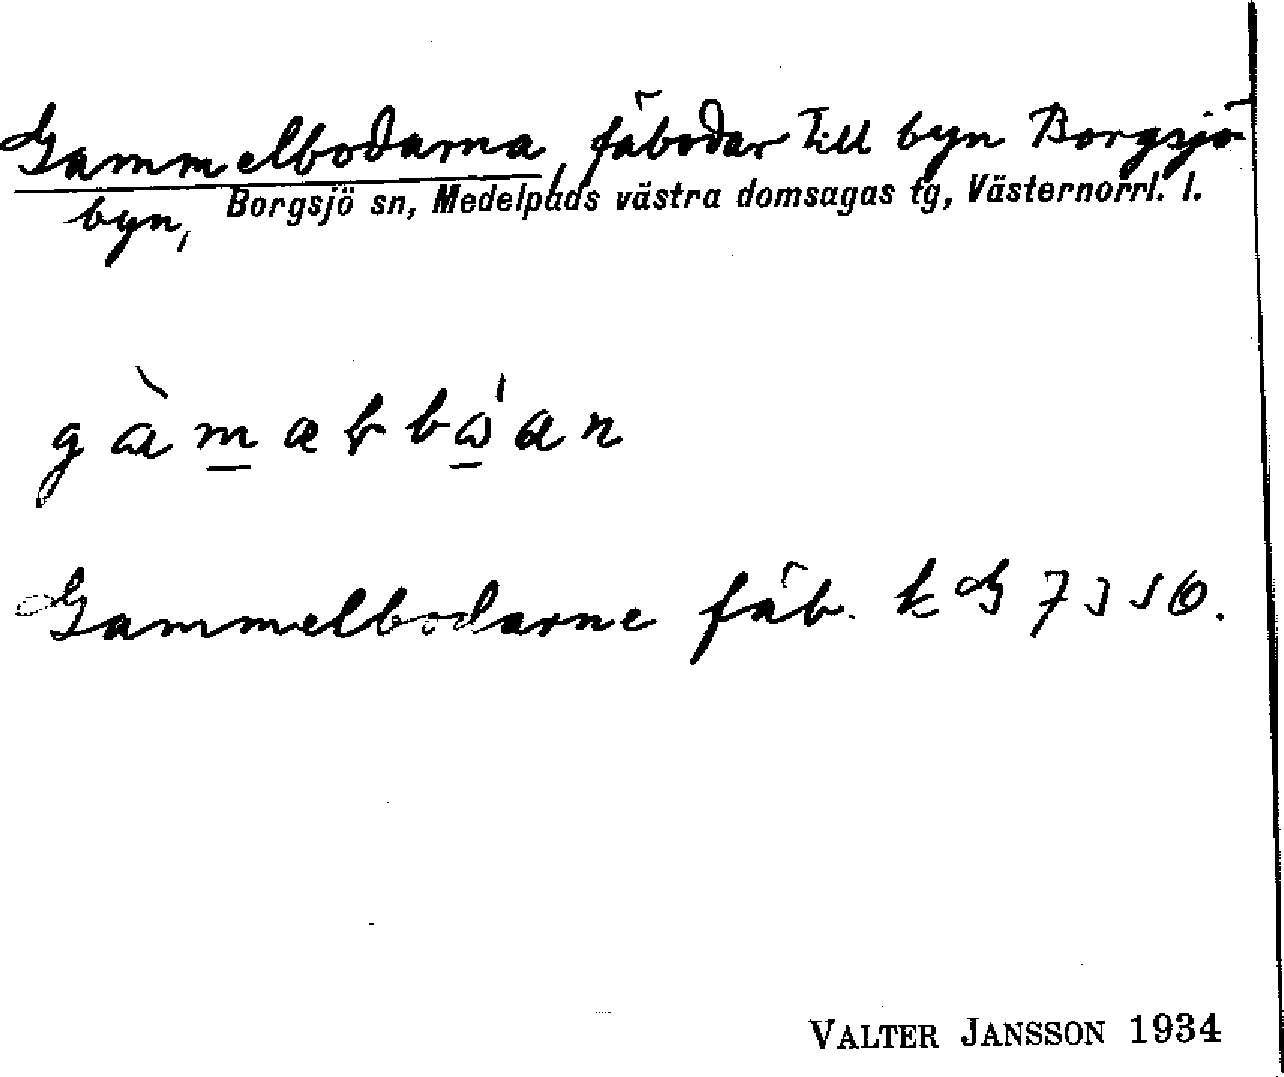 Gammelbodarna, fäbodar till byn Borgsjö
byn, Borgsjö sn, Medelpads västra domsagas tg, Västernorrl. l.
Gammelbodarne fäb.
VALTER JANSSON 1934